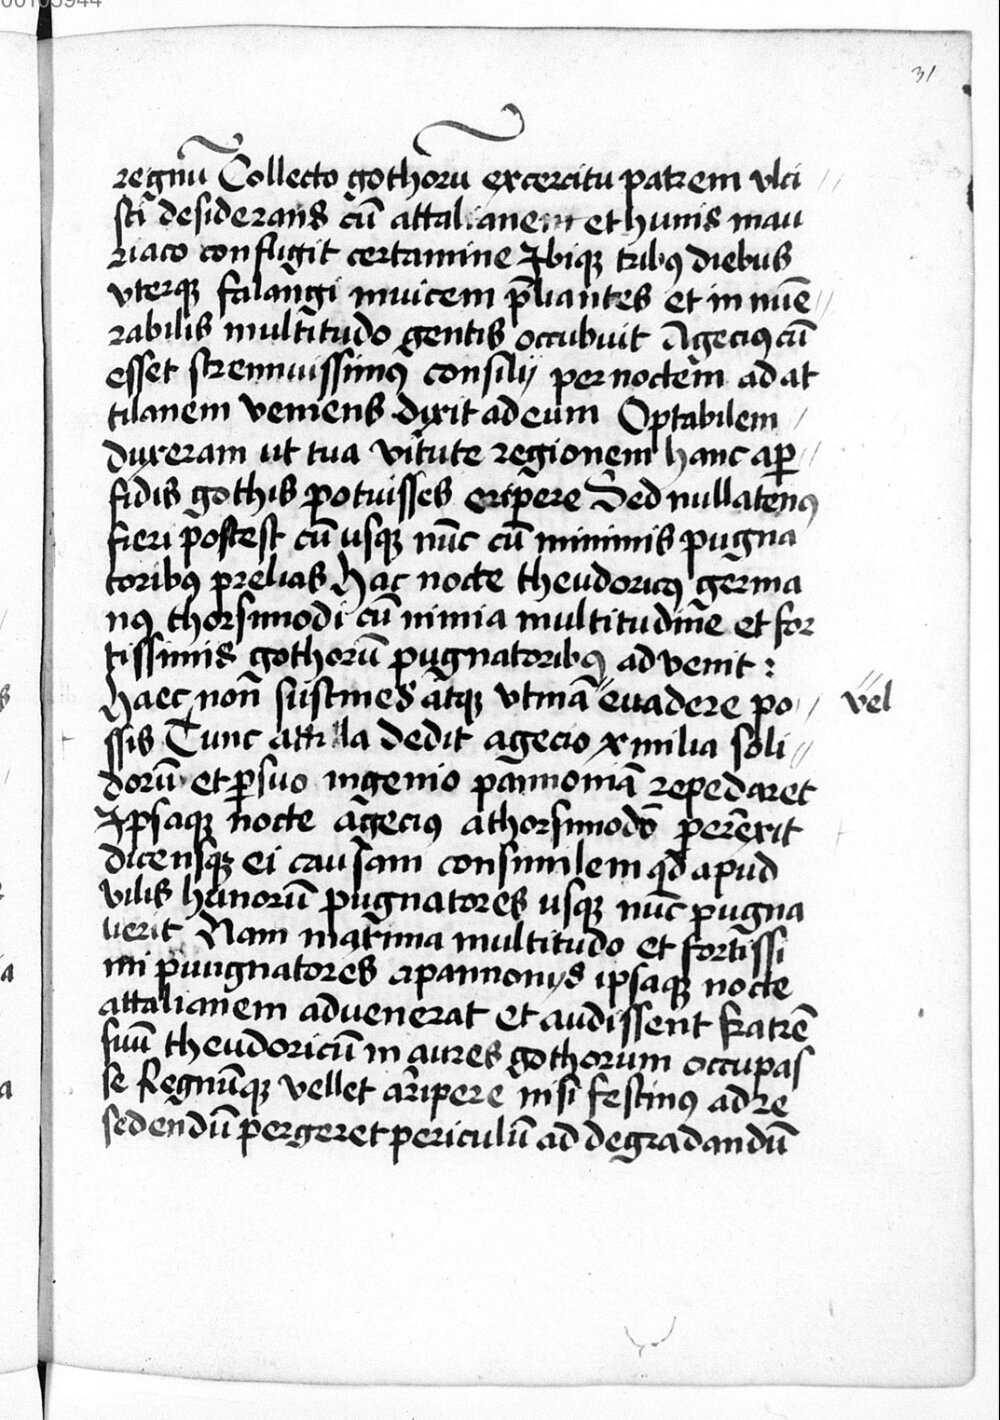 00103944
31
regnū Collecto gothorū excercitu patrem vlci
sci desiderans cū attalianem et hunis mau
riaco confligit certamine Ibique tribꝰ diebus
vterque falangi inuicem p̄liantes et in nūe
rabilis multitudo gentis occubuit Ageciꝰ cū
esset strennuissimꝰ consilij per noctem ad at
tilanem veniens dixit ad eum Optabilem
duxeram ut tua vitute regionem hanc a ꝑ
fidis gothis potuisses eripere Sed nullatenꝰ
fieri postest cū usque nūc cū minimis pugna
toribꝰ prelias Hac nocte theudoricꝰ germa
nꝰ thorsimodi cū nimia multitudine et for
tissimis gothorū pugnatoribꝰ advenit :
Haec non̄ sustines atque vtinā euadere po
vel
ssis Tunc attila dedit agecio x milia soli
dorū et ꝑ suo ingenio pannoniā repedaret
Ipsaque nocte ageciꝰ a thorsimodō perrexit
dicensque ei causam consimilem qd apud
vilis hunorū pugnatores usque nūc pugna
uerit Nam maxima multitudo et fortissi
mi puugnatores a pannonijs ipsaque nocte
attalianem advenerat et audissent fratrē
suū theudoricū in aures gothorum occupas
se Regnūque vellet arripere nisi festinꝰ ad re
sedendū pergeret periculū ad degradandū